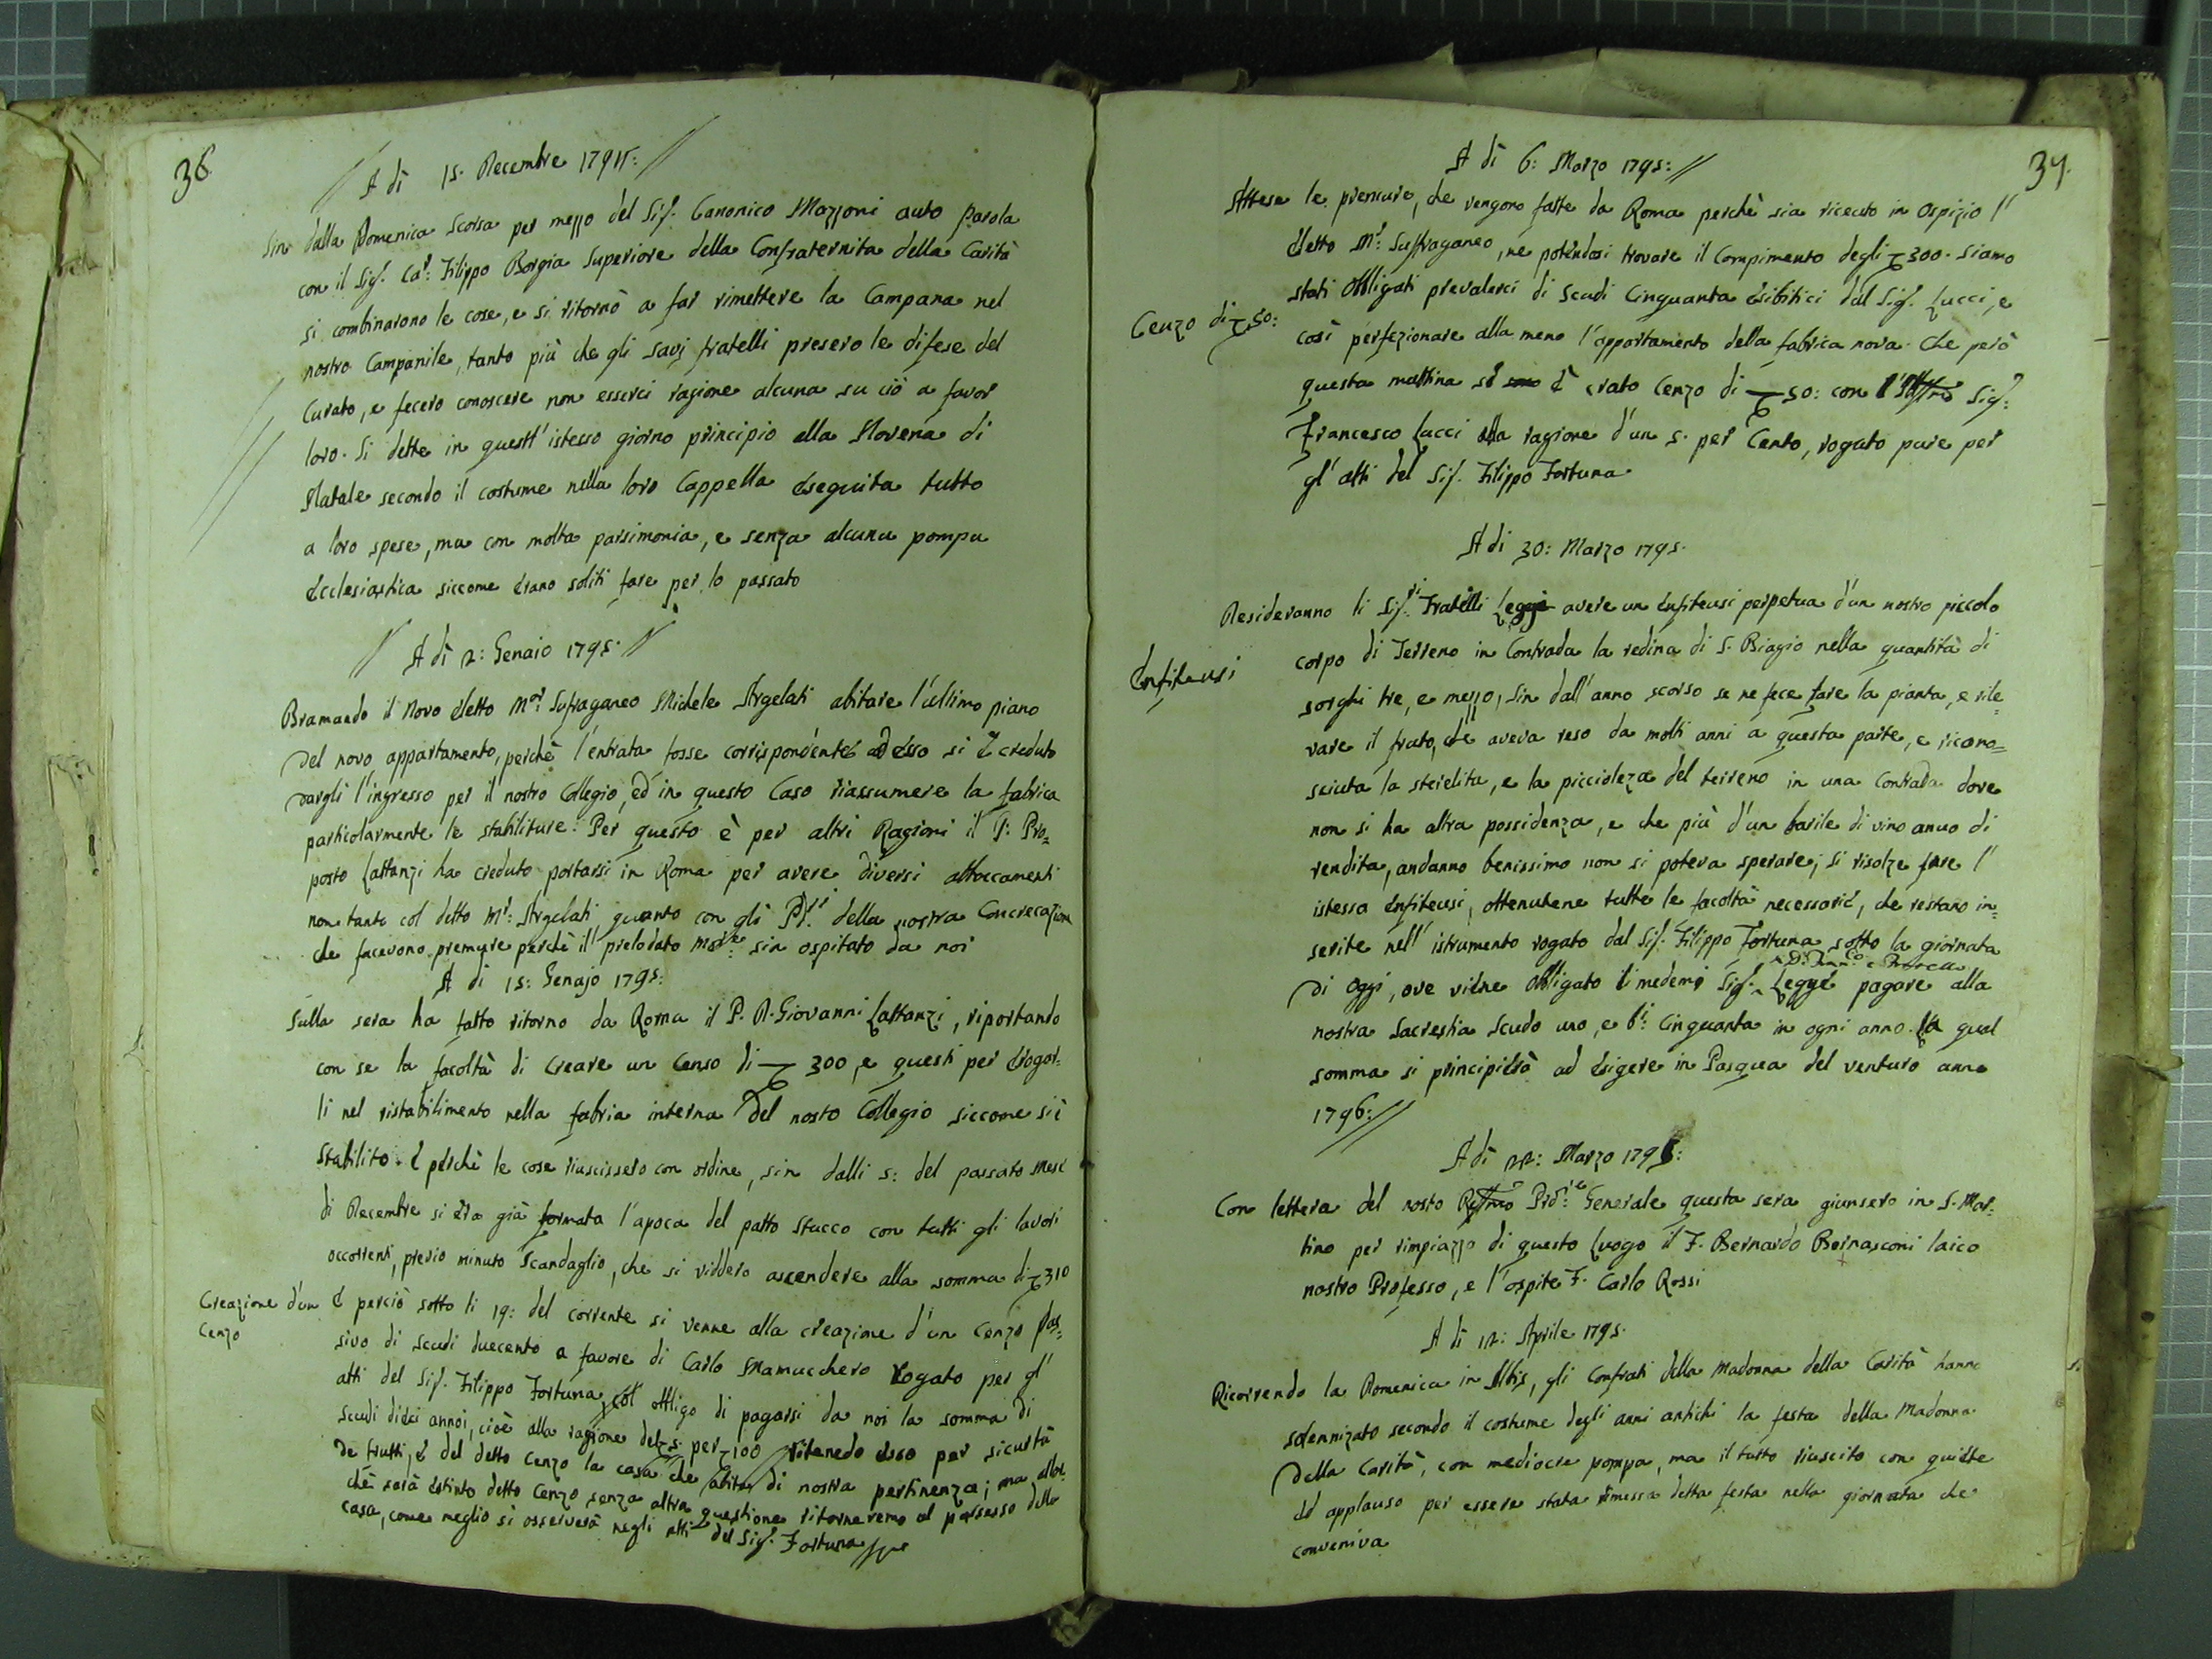 36
A dì 15. Decembre 1794://
Sin dalla Domenica scorsa per mezzo del Sig. Canonico Mazzoni auto parola
con il Sig. Ca.r Filippo Borgia Superiore della Confraternita della Carità
si combinarono le cose, e si ritornò a far rimettere la Campana nel
nostro Campanile, tanto più che gli savj fratelli presero le difese del
Curato, e fecero conoscere non esserci ragione alcuna su ciò a favor
loro. Si dette in questt'istesso giorno principio alla Novena di
Natale secondo il costume nella loro Cappella eseguita tutto
a loro spese, ma con molta parsimonia, e senza alcuna pompa
Ecclesiastica siccome erano soliti fare per lo passato
// A dì 2: Genaio 1795. //
Bramando il Novo eletto M.or Sufraganeo Michele Argelati abitare l'ultimo piano
del novo appartamento, perchè l'entrata fosse corrispondente ad esso si è creduto
dargli l'ingresso per il nostro Collegio, ed in questo Caso riassumere la fabrica
particolarmente le stabiliture. Per questo è per altri Ragioni il P: Pro=
posto Lattanzi ha creduto portarsi in Roma per avere diversi attoccamenti
non tanto col detto M.r: Argelati quanto con gli PP.ri della nostra Concrecazione
che facevono premure perchè il prelodato Mo.re: sin ospitato da noi
A di 15: Genajo 1795:
Sulla sera ha fatto ritorno da Roma il P. D. Giovanni Lattanzi, riportando
con se la facoltà di Creare un Censo di 300, e questi per erogar=
li nel ristabilimento nella fabria interna del nosto Collegio siccome si è
Stabilito. E perchè le cose riuscissero con ordine, sin dalli 5: del passato Mese
di Decembre si era già formata l'apoca del patto Stucco con tutti gli lavori
occorrenti, previo minuto Scandaglio, che si viddero ascendere alla somma di 310
Creazione d'un
Cenzo
E perciò sotto li 19: del corrente si venne alla creazione d'un Cenzo Pas=
sivo di Scudi duecento a favore di Carlo Mamucchero Rogato per gl'
atti del Sig. Filippo Fortuna, col obligo di pagarsi da noi la somma di
Scudi dieci annoi, cioè alla ragione del 5. per 100 ritenedo esso per sicurtà
de frutti, e del detto Cenzo la casa che abita di nostra pertinenza; ma allor=
chè sarà estinto detto Cenzo senza altra questione ritorneremo al possesso della
casa, come meglio si osserverà negli atti del Sig. Fortuna
37.
A dì 6: Marzo 1795: //
Attese le premure, che vengono fatte da Roma perchè sia ricevuto in Ospizio l'
eletto M.r: Suffraganeo, ne potendosi trovare il Compimento degli 300. siamo
stati Obligati prevalerci di Scudi Cinquanta esibitici dal Sig. Lucci, e
Cenzo di 50:
così perfezionare alla meno l'appartamento della fabrica nova. Che però
questa mattina si è crato Cenzo di 50: con Sig.
Francesco Lucci alla ragione d'un 5. per Cento, rogato pure per
gl'atti del Sig. Filippo Fortuna
A di 30: Marzo 1795.
Desideranno li Sig.ri Fratelli Leggi avere un Enfiteusi perpetua d'un nostro piccolo
Enfiteusi
corpo di Terreno in Contrada la redina di S. Biagio nella quantità di
sorghi tre, e mezzo, Sin dall'anno scorso se ne fece fare la pianta, e rile=
vare il fruto, che aveva reso da molti anni a questa parte, e ricono=
sciuta la sterelita, e la piccioleza del terreno in una Contrada dove
non si ha altra possidenza, e che più d'un barile di vino anuo di
rendita, andanno benissimo non si poteva sperare; si risolze fare l'
istessa Enfiteusi, ottenutene tutte le facoltà necessarie, che restano in=
serite nell'istrumento rogato dal Sig. Filippo Fortuna sotto la giornata
di Oggi, ove viene Obligato li medemi Sig. Leggi pagare alla
nostra Sacrestia Scudo uno, e b.i: Cinquanta in ogni anno. La qual
somma si principierà ad esigere in Pasqua del venturo anno
1796://
A dì 22: Marzo 1795:
Con lettera del nosto Pro.re Generale questa sera giunsero in S. Mar=
tino per rimpiazzo di questo Luogo il F. Bernardo Bernasconi laico
nostro Professo, e l'ospite F. Carlo Rossi
A di 12: Aprile 1795.
Ricorrendo la Domenica in Albis, gli Confrati della Madonna della Carità hanno
solennizato secondo il costume degli anni antichi la festa della Madonna
della Carità, con mediocre pompa, ma il tutto riuscito con quiete
ed applauso per essere stata rimessa detta festa nella giornata che
conveniva